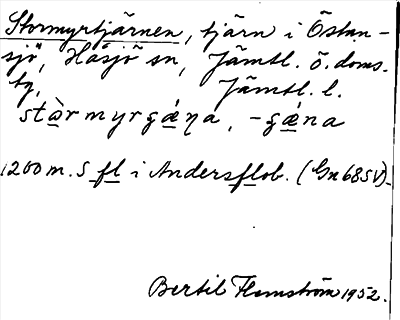 Stormyrtjärnen, tjärn i Östan-
sjö, Håsjö sn, Jämtl. ö. doms.
Jämtl. l.
stòrmyrgǽŋa, -gǽna
1200 m. S fl i Andersflob. (Gn 68 SV)
Bertil Flemström 1952.